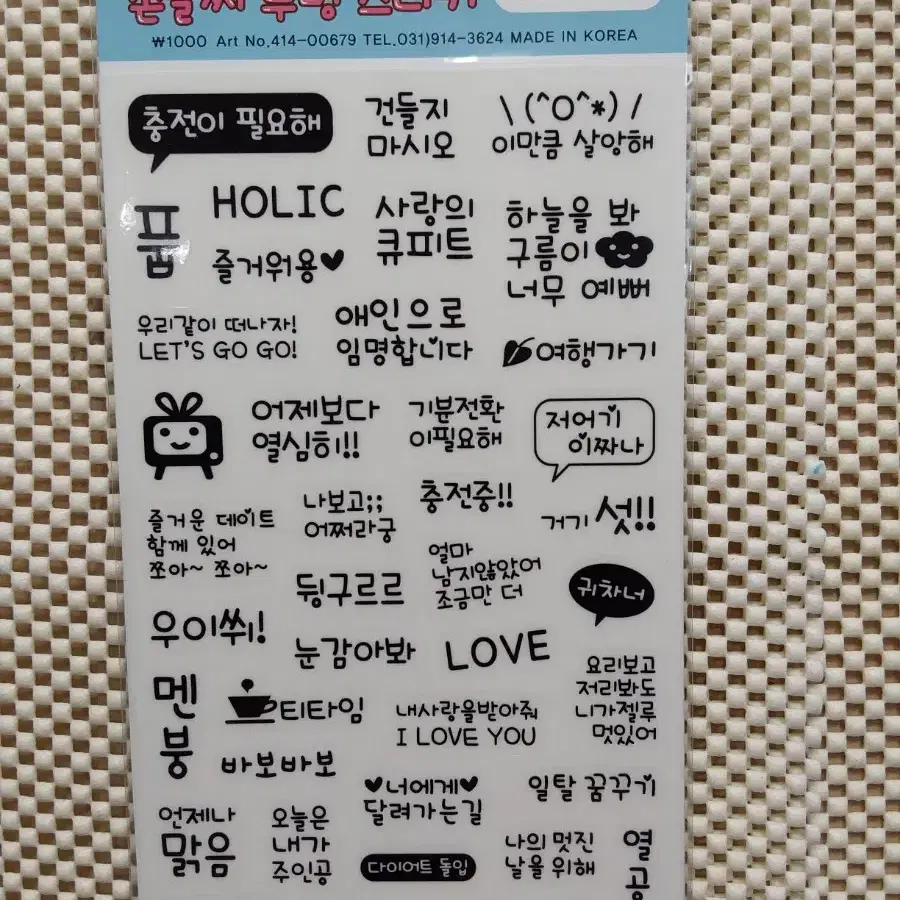 손글씨 투명 스티커
₩1000 Art No.414-00679 TEL.031)914-3624 MADE IN KOREA
충전이 필요해
건들지
마시오
\(^O^*)/
이만큼 살앙해
품
HOLIC
즐거워용♥
사랑의
큐피트
하늘을 봐
구름이
너무 예뻐
우리같이 떠나자!
LET'S GO GO!
애인으로
임명합니다
여행가기
어제보다
열심히!!
기분전환
이필요해
저어기
이짜나
즐거운 데이트
함께 있어
쪼아~ 쪼아~
나보고;;
어쩌라궁
충전중!!
거기 섯!!
뒹구르르
얼마
남지않았어
조금만 더
귀차너
우이쒸!
눈감아봐
LOVE
요리보고
저리봐도
니가젤루
멋있어
멘붕
티타임
내사랑을받아줘
I LOVE YOU
바보바보
♥너에게♥
달려가는길
일탈 꿈꾸기
언제나
맑음
오늘은
내가
주인공
다이어트 돌입
나의 멋진
날을 위해
열공